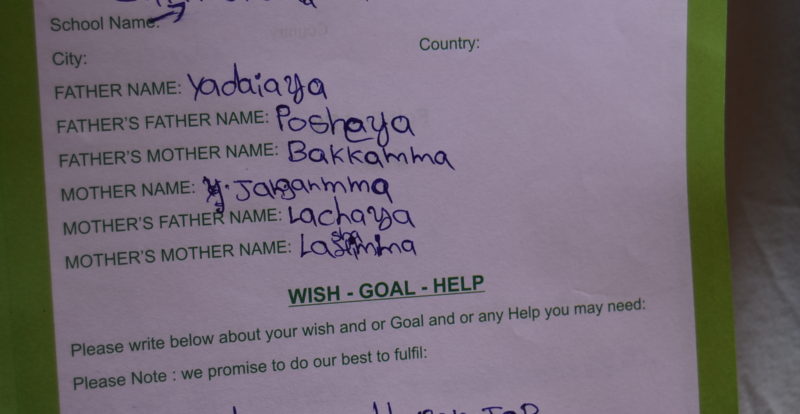 School Name:
City: Country:
FATHER NAME: Yadaiaya
FATHER'S FATHER NAME: Poshaya
FATHER'S MOTHER NAME: Bakkamma
MOTHER NAME: y. Janganmma
MOTHER'S FATHER NAME: Lachaya
MOTHER'S MOTHER NAME:
WISH - GOAL - HELP
Please write below about your wish and or Goal and or any Help you may need:
Please Note : we promise to do our best to fulfil: